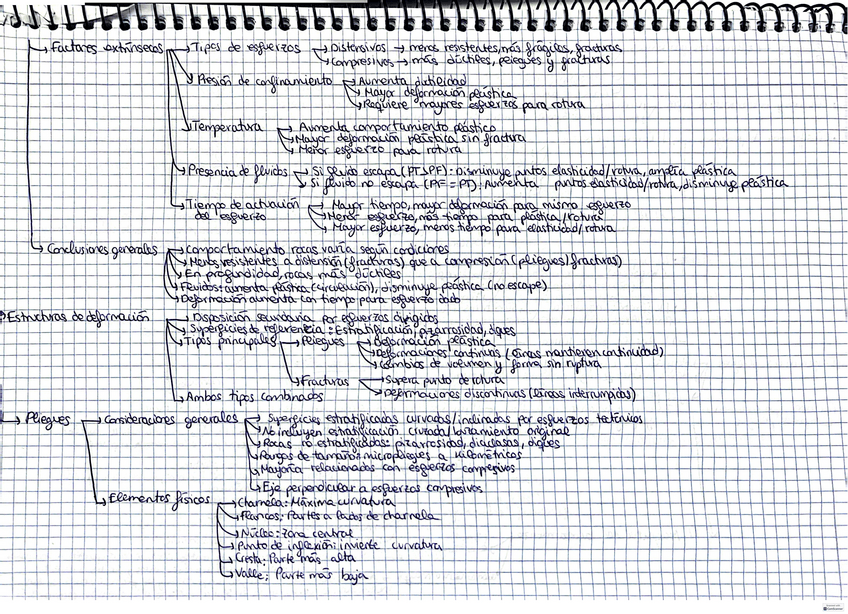 Factores extrínsecos → Tipos de esfuerzos → Distensivos → menos resistentes, más frágiles, fracturas
Compresivos → más dúctiles, pliegues y fracturas
Presión de confinamiento → Aumenta ductilidad
Mayor deformación plástica
Requiere mayores esfuerzos para rotura
Temperatura → Aumenta comportamiento plástico
Mayor deformación plástica sin fractura
Menor esfuerzo para rotura
Presencia de fluidos → Si fluido escapa (PT>PF): Disminuye puntos elasticidad/rotura, amplía plástica
Si fluido no escapa (PF = PT): Aumenta puntos elasticidad/rotura, disminuye plástica
Tiempo de actuación → Mayor tiempo, mayor deformación para mismo esfuerzo
del esfuerzo → Menor esfuerzo, más tiempo para plástica/rotura
Mayor esfuerzo, menos tiempo para elasticidad/rotura
Conclusiones generales → Comportamiento rocas varía según condiciones
Menos resistentes a distensión (fracturas) que a compresión (pliegues/fracturas)
En profundidad, rocas más dúctiles
Fluidos: aumenta plástica (circulación), disminuye plástica (no escape)
Deformación aumenta con tiempo para esfuerzo dado
Estructuras de deformación → Disposición secundaria por esfuerzos dirigidos
Superficies de referencia: Estratificación, pizarrosidad, diques
Tipos principales → Pliegues → Deformación plástica
Deformaciones continuas (líneas mantienen continuidad)
Cambios de volumen y forma sin ruptura
Fracturas → Supera punto de rotura
Deformaciones discontinuas (líneas interrumpidas)
Ambos tipos combinados
Pliegues → Consideraciones generales → Superficies estratificadas curvadas/inclinadas por esfuerzos tectónicos
No incluyen estratificación cruzada/ original
Rocas no estratificadas: pizarrosidad, diaclasas, diques
Rangos de tamaño: micropliegues a kilométricos
Mayoría relacionados con esfuerzos compresivos
Eje perpendicular a esfuerzos compresivos
Elementos físicos → Charnela: Máxima curvatura
Flancos: Partes a lados de charnela
Núcleo: zona central
Punto de inflexión: invierte curvatura
Cresta: Parte más alta
Valle: Parte más baja